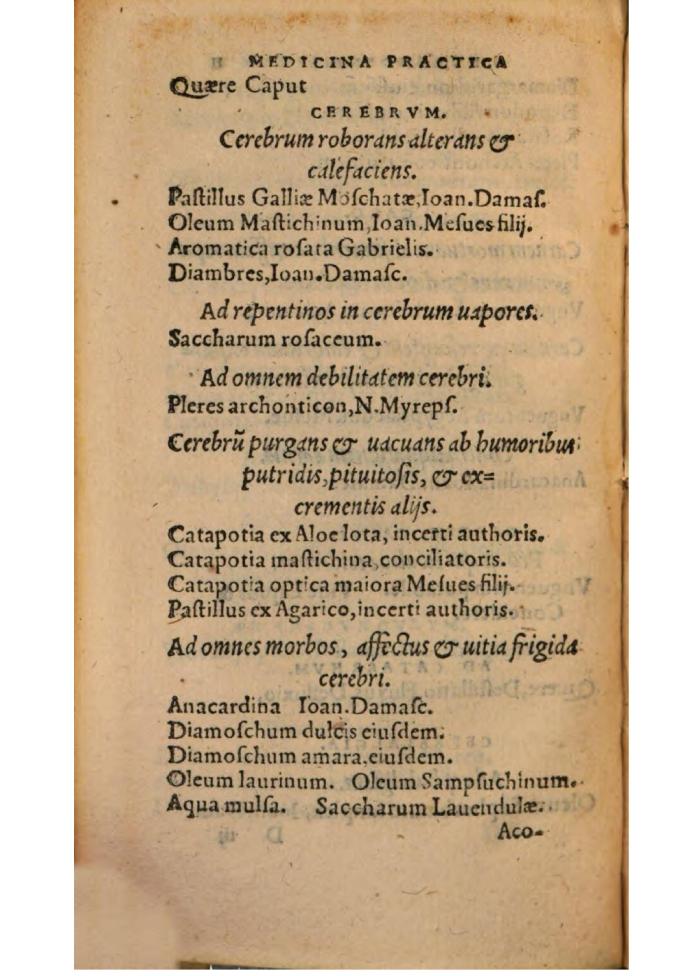 MEDICINA PRACTICA
Quære Caput
CEREBRVM.
Cerebrum roborans alterans &
calefaciens.
Paſtillus Galliæ Moſchatæ, Ioan.Damaſ.
Oleum Maſtichinum, Ioan.Meſues filij.
Aromatica roſata Gabrielis.
Diambres, Ioan.Damaſc.
Ad repentinos in cerebrum uapores.
Saccharum roſaceum.
Ad omnem debilitatem cerebri.
Pleres archonticon, N.Myrepſ.
Cerebrũ purgans & uacuans ab humoribus
putridis, pituitoſis, & ex=
crementis alijs.
Catapotia ex Aloe lota, incerti authoris.
Catapotia maſtichina, conciliatoris.
Catapotia optica maiora Meſues filij.
Paſtillus ex Agarico, incerti authoris.
Ad omnes morbos, affectus & uitia frigida
cerebri.
Anacardina Ioan.Damaſc.
Diamoſchum dulcis eiuſdem.
Diamoſchum amara, eiuſdem.
Oleum laurinum. Oleum Sampſuchinum.
Aqua mulſa. Saccharum Lauendulæ.
Aco-